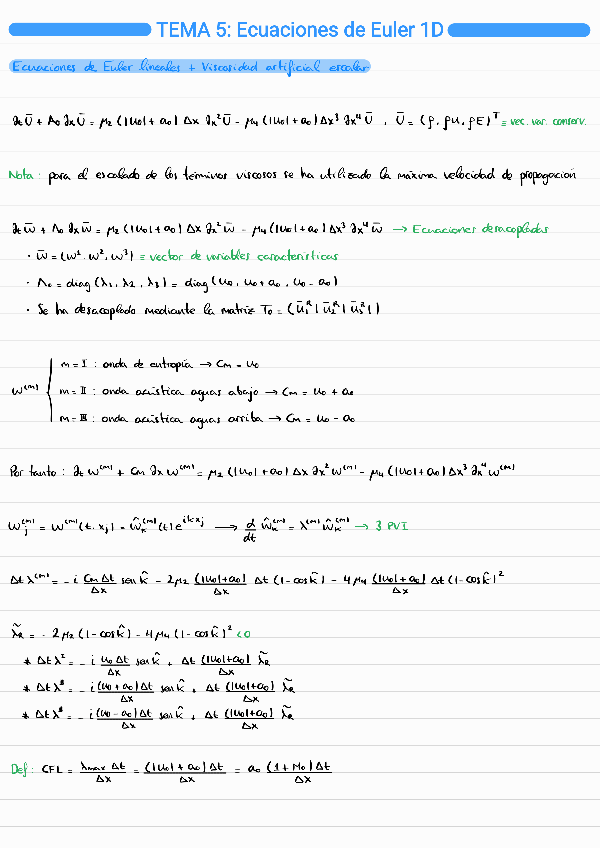 TEMA 5: Ecuaciones de Euler 1D
Ecuaciones de Euler lineales + Viscosidad artificial escalar
∂t Ū + A₀ ∂x Ū = μ₂ (|u₀| + a₀) Δx ∂x² Ū - μ₄ (|u₀| + a₀) Δx³ ∂x⁴ Ū , Ū = (ρ, ρu, ρE)ᵀ ≡ vec. var. conserv.
Nota: para el escalado de los términos viscosos se ha utilizado la máxima velocidad de propagación
∂t w̄ + Λ₀ ∂x w̄ = μ₂ (|u₀| + a₀) Δx ∂x² w̄ - μ₄ (|u₀| + a₀) Δx³ ∂x⁴ w̄ → Ecuaciones desacopladas
· w̄ = (w¹, w², w³) ≡ vector de variables características
· Λ₀ = diag (λ₁, λ₂, λ₃) = diag (u₀, u₀ + a₀, u₀ - a₀)
· Se ha desacoplado mediante la matriz T₀ = (ū₁ᴿ | ū₂ᴿ | ū₃ᴿ |)
m = I : onda de entropía → Cm = u₀
w⁽ᵐ⁾ { m = II : onda acústica aguas abajo → Cm = u₀ + a₀
m = III : onda acústica aguas arriba → Cm = u₀ - a₀
Por tanto : ∂t w⁽ᵐ⁾ + Cm ∂x w⁽ᵐ⁾ = μ₂ (|u₀| + a₀) Δx ∂x² w⁽ᵐ⁾ - μ₄ (|u₀| + a₀) Δx³ ∂x⁴ w⁽ᵐ⁾
wⱼ⁽ᵐ⁾ = w⁽ᵐ⁾(t, xⱼ) = ŵₖ⁽ᵐ⁾(t) e^{ikxⱼ} → d/dt ŵₖ⁽ᵐ⁾ = λ⁽ᵐ⁾ ŵₖ⁽ᵐ⁾ → 3 PVI
Δt λ⁽ᵐ⁾ = - i Cm Δt/Δx sen k̂ - 2μ₂ (|u₀| + a₀)/Δx Δt (1 - cos k̂) - 4μ₄ (|u₀| + a₀)/Δx Δt (1 - cos k̂)²
λ̃R = - 2μ₂ (1 - cos k̂) - 4μ₄ (1 - cos k̂)² < 0
* Δt λᴵ = - i u₀ Δt/Δx sen k̂ + Δt (|u₀| + a₀)/Δx λ̃R
* Δt λᴵᴵ = - i (u₀ + a₀) Δt/Δx sen k̂ + Δt (|u₀| + a₀)/Δx λ̃R
* Δt λᴵᴵᴵ = - i (u₀ - a₀) Δt/Δx sen k̂ + Δt (|u₀| + a₀)/Δx λ̃R
Def : CFL = λmax Δt/Δx = (|u₀| + a₀) Δt/Δx = a₀ (1 + M₀) Δt/Δx